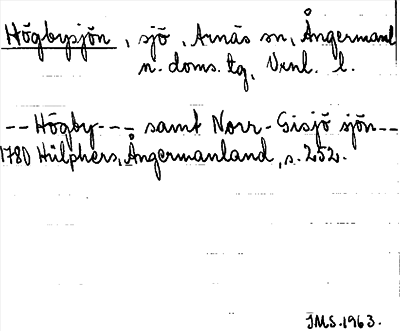 Högbysjön, sjö, Arnäs sn, Ångermanl
n. doms. tg, Vrnl. l.
-- Högby --- samt Norr-Gisjö sjön --
1780 Hülphers, Ångermanland, s. 252.
JMS. 1963.